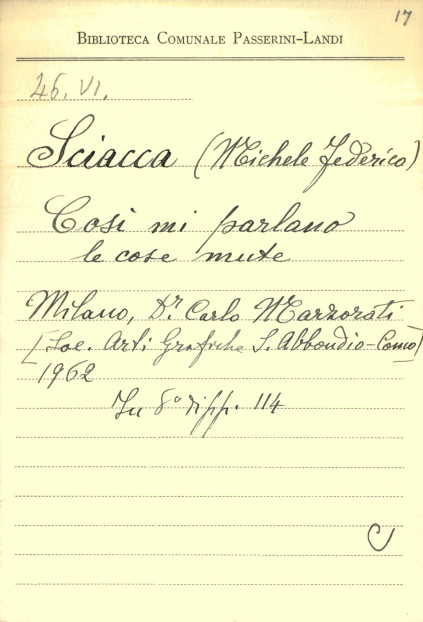 17
BIBLIOTECA COMUNALE PASSERINI-LANDI
46. VI.
Sciacca (Michele Federico)
Così mi parlano
le cose mute
Milano, Dr. Carlo Marzorati
[Soc. Arti Grafiche S. Abbondio-Como]
1962
In 8° di pp. 114
C